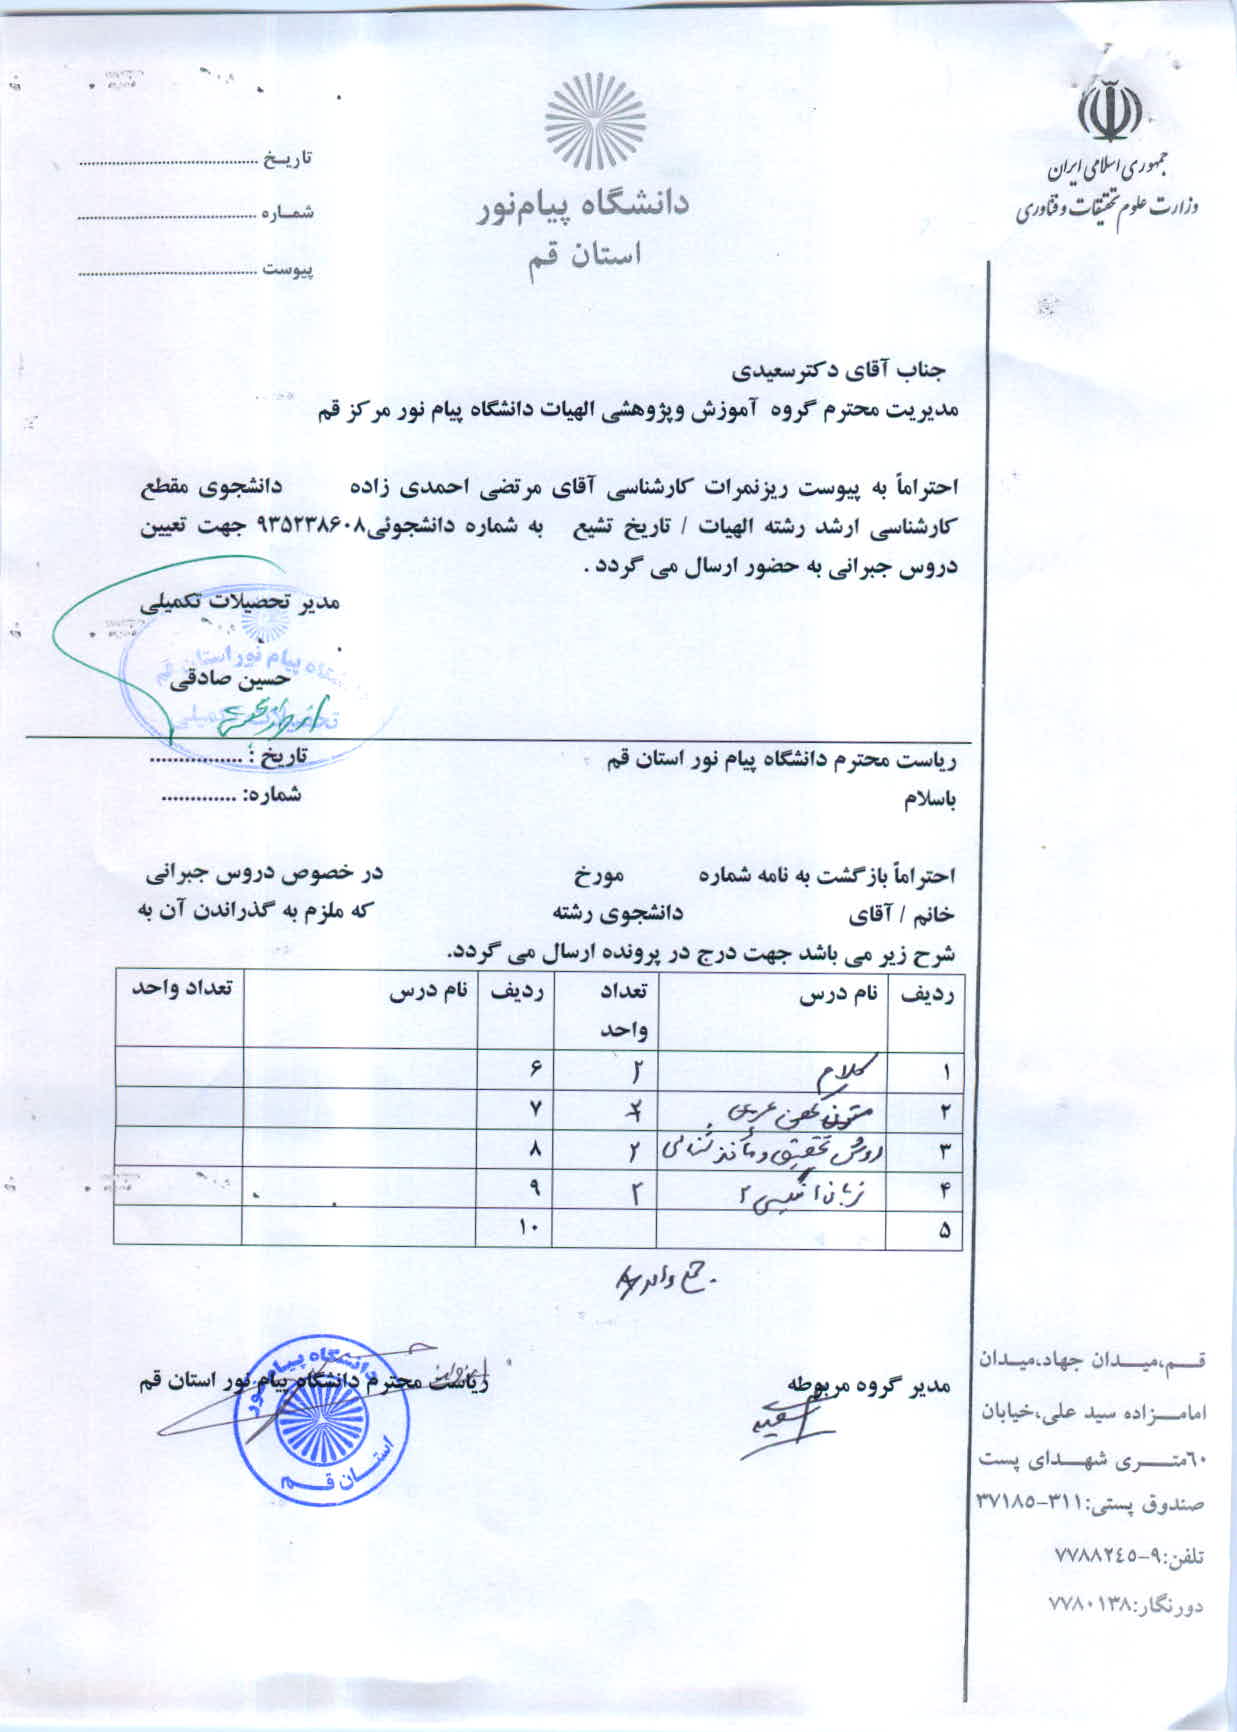 جمهوری اسلامی ایران
وزارت علوم تحقیقات و فناوری
دانشگاه پیام‌نور
استان قم
تاریـخ ..........................................
شمـاره ..........................................
پیوست ..........................................
جناب آقای دکترسعیدی
مدیریت محترم گروه آموزش وپژوهشی الهیات دانشگاه پیام نور مرکز قم
احتراماً به پیوست ریزنمرات کارشناسی آقای مرتضی احمدی زاده دانشجوی مقطع
کارشناسی ارشد رشته الهیات / تاریخ تشیع به شماره دانشجوئی۹۳۵۲۳۸۶۰۸ جهت تعیین
دروس جبرانی به حضور ارسال می گردد .
مدیر تحصیلات تکمیلی
دانشگاه پیام نور استان قم
حسین صادقی
تحصیلات تکمیلی
ریاست محترم دانشگاه پیام نور استان قم تاریخ : ................
باسلام شماره: .............
احتراماً بازگشت به نامه شماره مورخ در خصوص دروس جبرانی
خانم / آقای دانشجوی رشته که ملزم به گذراندن آن به
شرح زیر می باشد جهت درج در پرونده ارسال می گردد.
ردیف نام درس تعداد واحد ردیف نام درس تعداد واحد
۱ کلام ۲ ۶
۲ متون کهن عربی ۲ ۷
۳ روش تحقیق و مأخذ شناسی ۲ ۸
۴ زبان انگلیسی ۲ ۲ ۹
۵ ۱۰
جمع واحد ۸
مدیر گروه مربوطه ریاست محترم دانشگاه پیام نور استان قم
دانشگاه پیام نور
استـان قـم
قـم،میـدان جهاد،میـدان
امامـزاده سید علی،خیابان
٦٠متـری شهـدای پست
صندوق پستی:۳۱۱-۳۷۱۸٥
تلفن:۹-۷۷۸۸۲٤٥
دورنگار:۷۷۸۰۱۳۸